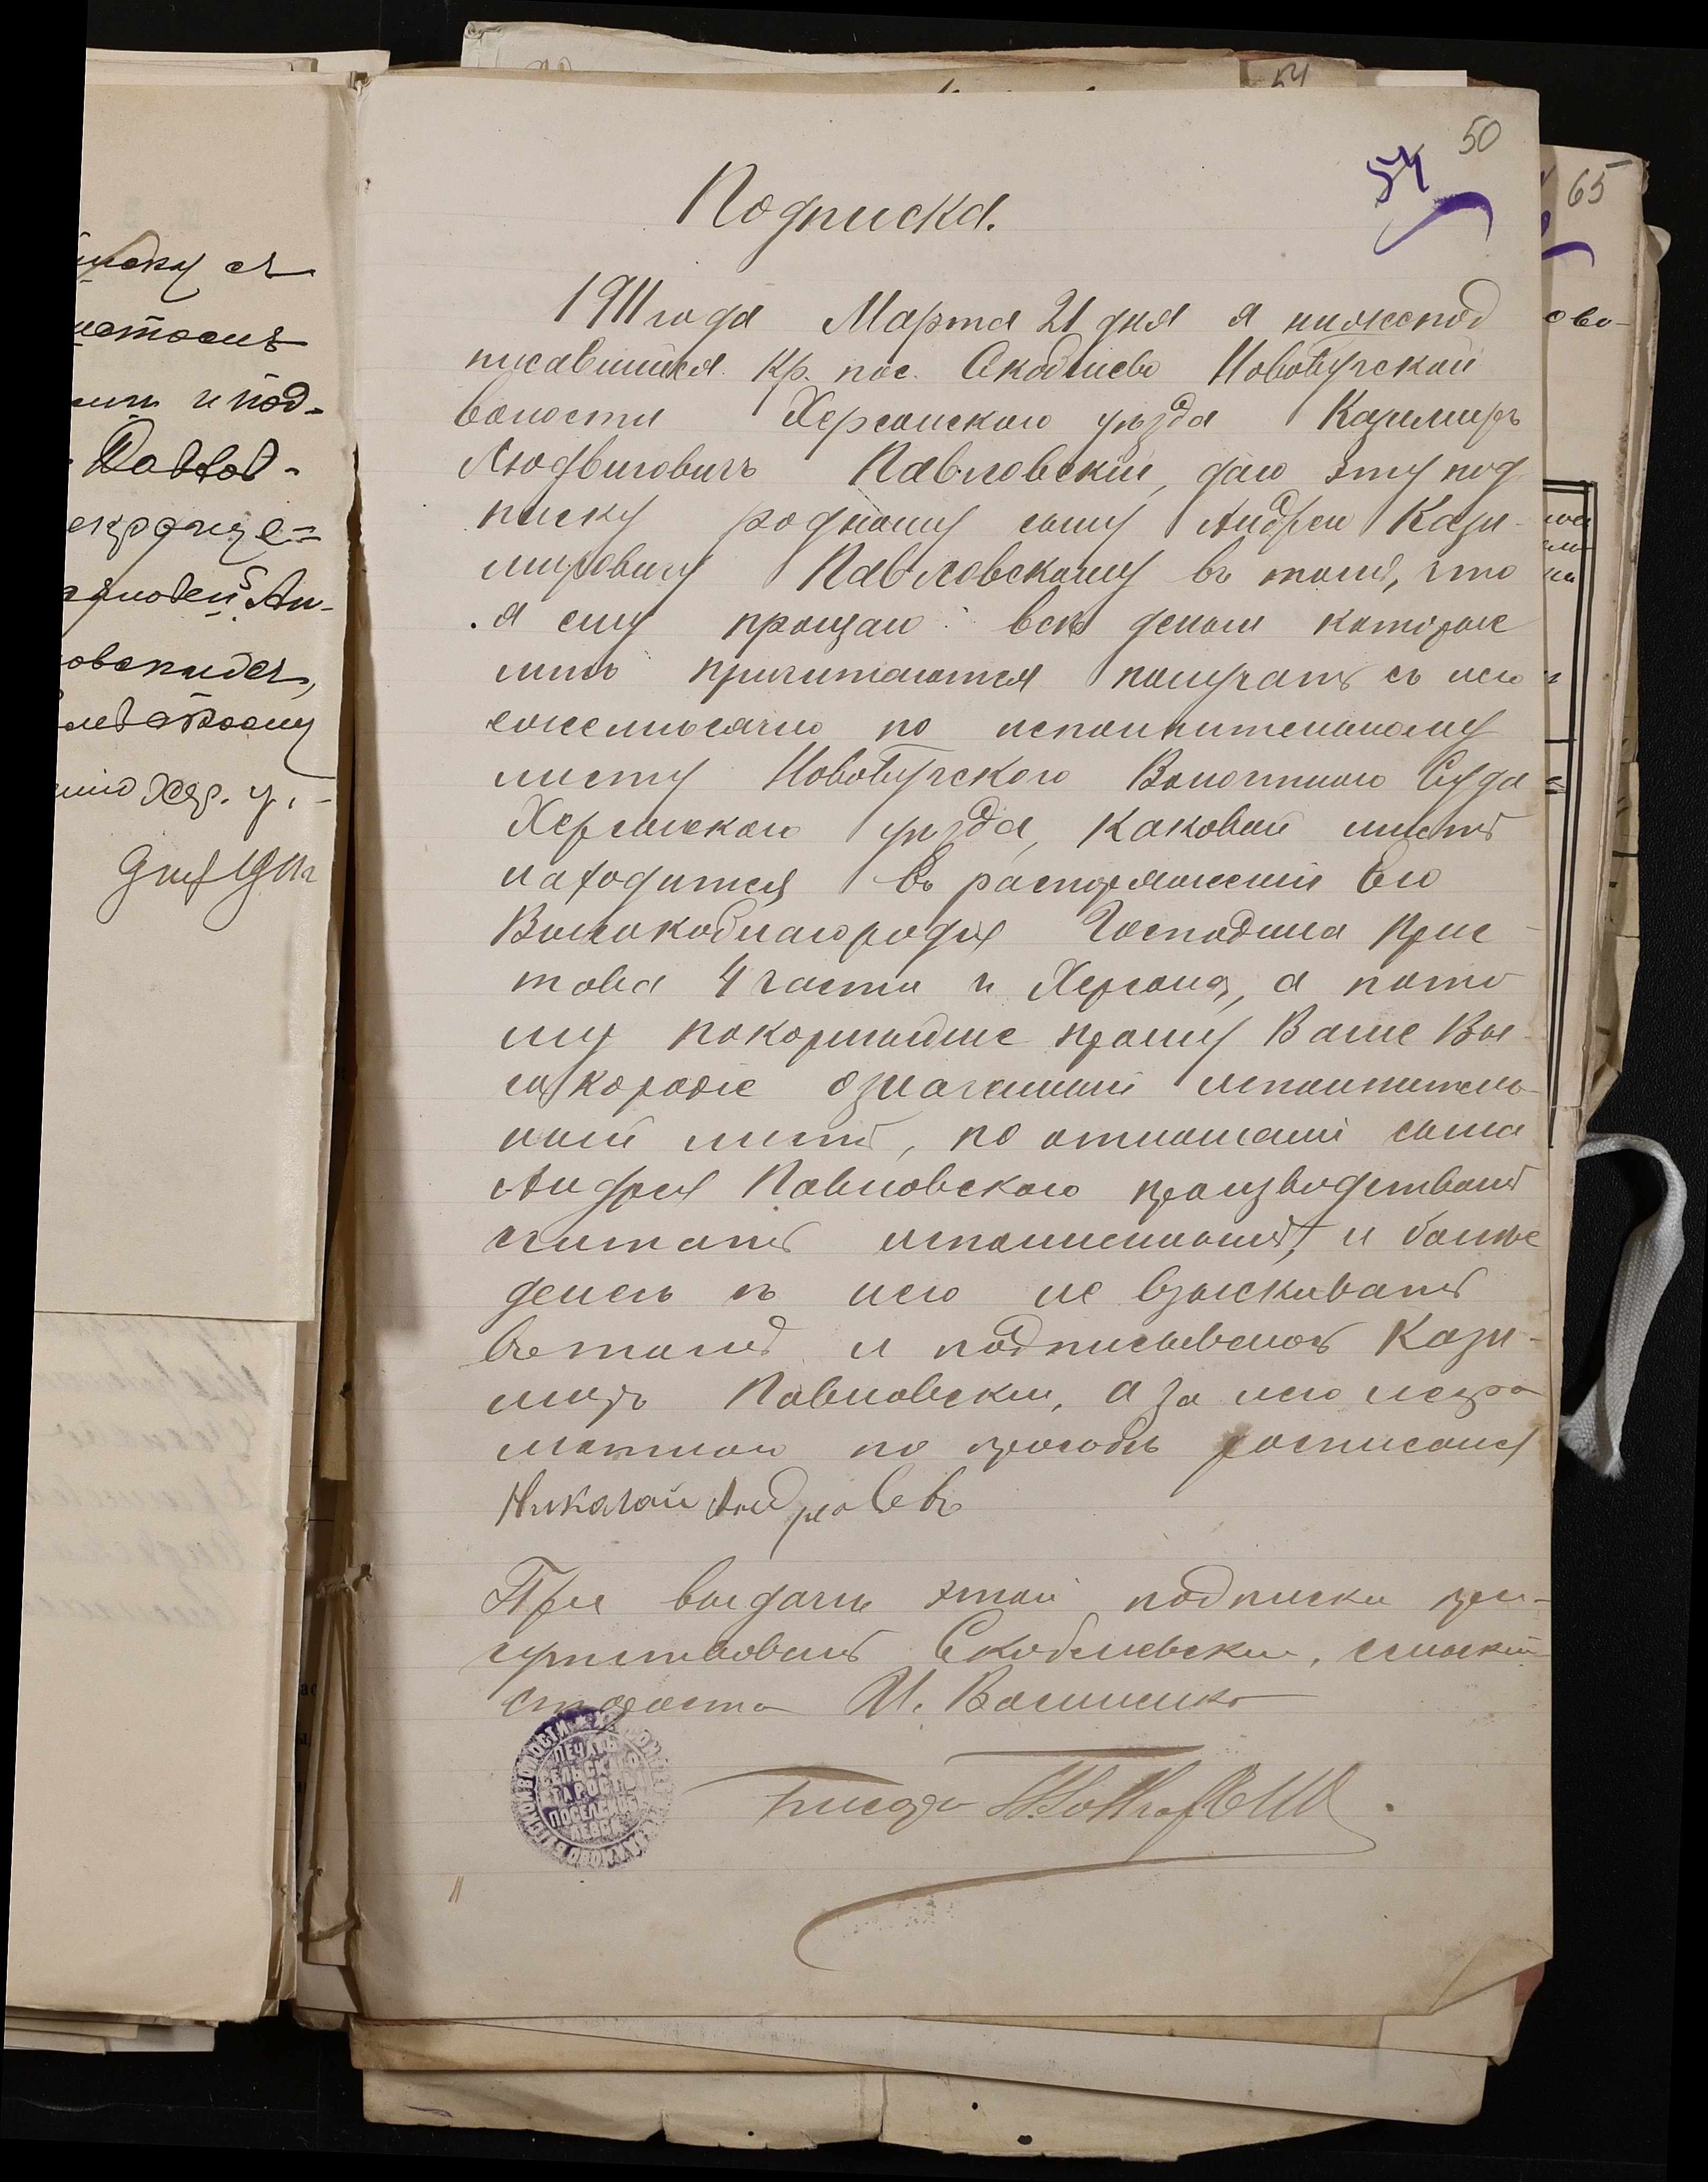 50
54
Подписка.
1911 года Марта 21 дня я нижепод
писавшийся кр. пос. Скобѣлево Новобугской
волости Херсонскаго уѣзда Казимиръ
Людвиговичъ Павловскій, даю эту под
писку родному сыну Андрею Кази-
мировичу Павловскому въ томъ, что
я ему прощаю всѣ деньги которые
мнѣ причитаются получать съ него
ежемѣсячно по исполнительному
листу Новобугскаго Волостного Суда
Херсонскаго уѣзда, каковой листъ
находится въ распоряженіи Его
Высокоблагородія Господина Прис-
това 4 части г. Херсона, а пото
му покорнѣйше прошу Ваше Вы-
сокородіе означенный исполнитель-
ный листъ, по отношенію сына
Андрея Павловскаго производствомъ
считать исполненнымъ, и больше
денегъ съ него не взыскивать
въ томъ и подписываюсь Кази-
миръ Павловскій, а за него негра
мотнаго по прозьбѣ росписался
Николай Андреевъ
При выдачи этой подписки при-
сутствовалъ Скобелевскій, сельскій
староста И. Василенко
Писарь
ПЕЧАТЬ
СЕЛЬСКАГО
СТАРОСТЫ
ПОС. СКОБЕ
ЛЕВКИ
65
ово-
54
съ
и под-
Павлов-
Ан-
Хер. у.